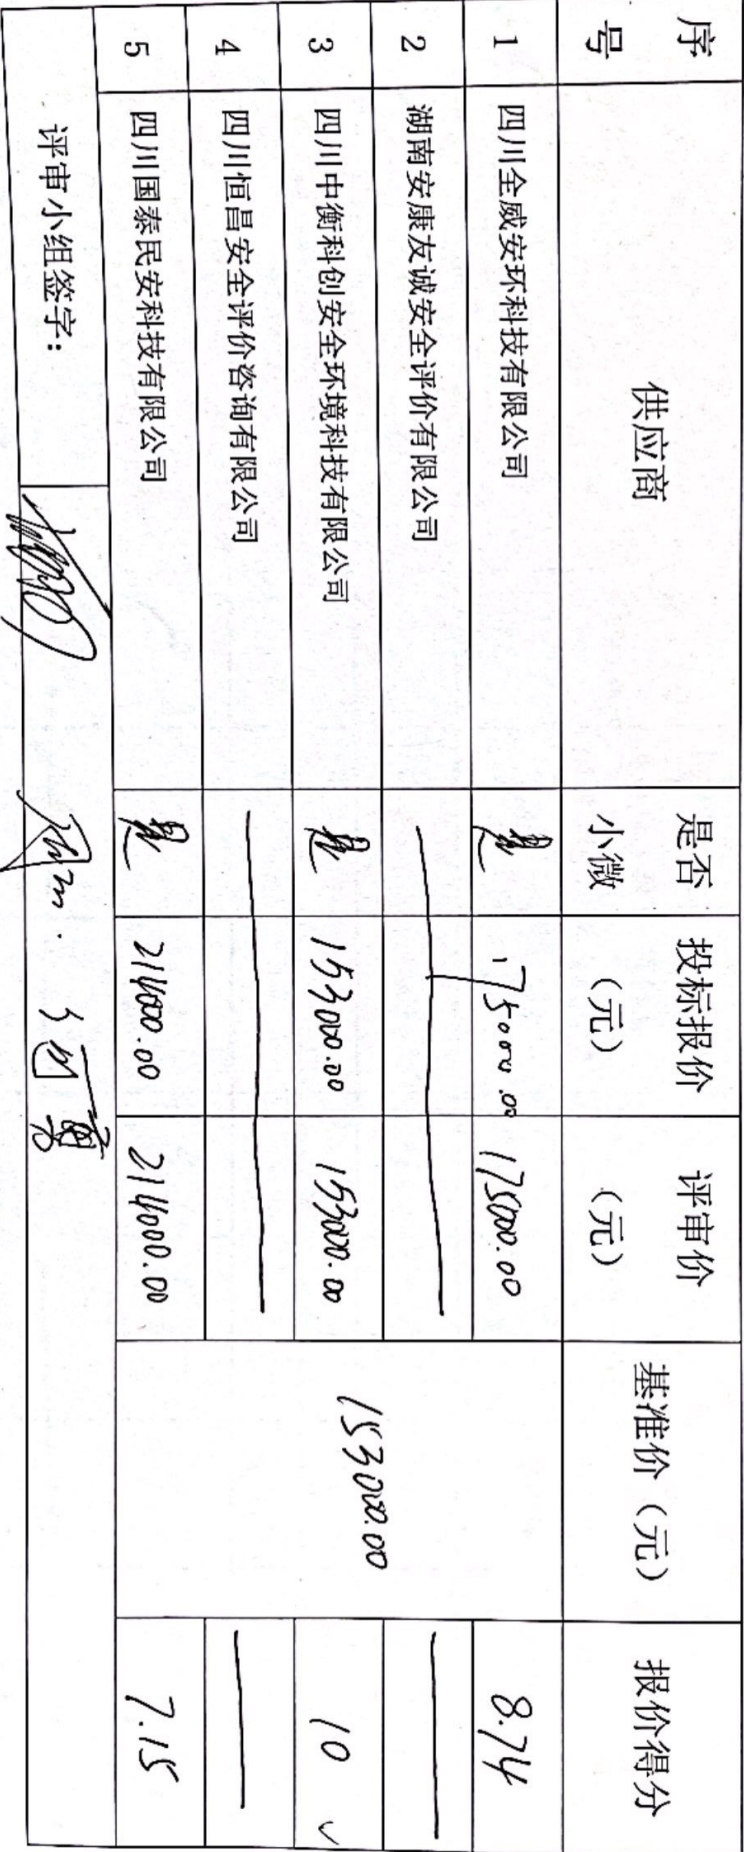 序号 供应商 是否小微 投标报价（元） 评审价（元） 基准价（元） 报价得分
1 四川全威安环科技有限公司 是 175000.00 175000.00 153000.00 8.74
2 湖南安康友诚安全评价有限公司
3 四川中衡科创安全环境科技有限公司 是 153000.00 153000.00 10 ✓
4 四川恒昌安全评价咨询有限公司
5 四川国泰民安科技有限公司 是 214000.00 214000.00 7.15
评审小组签字：